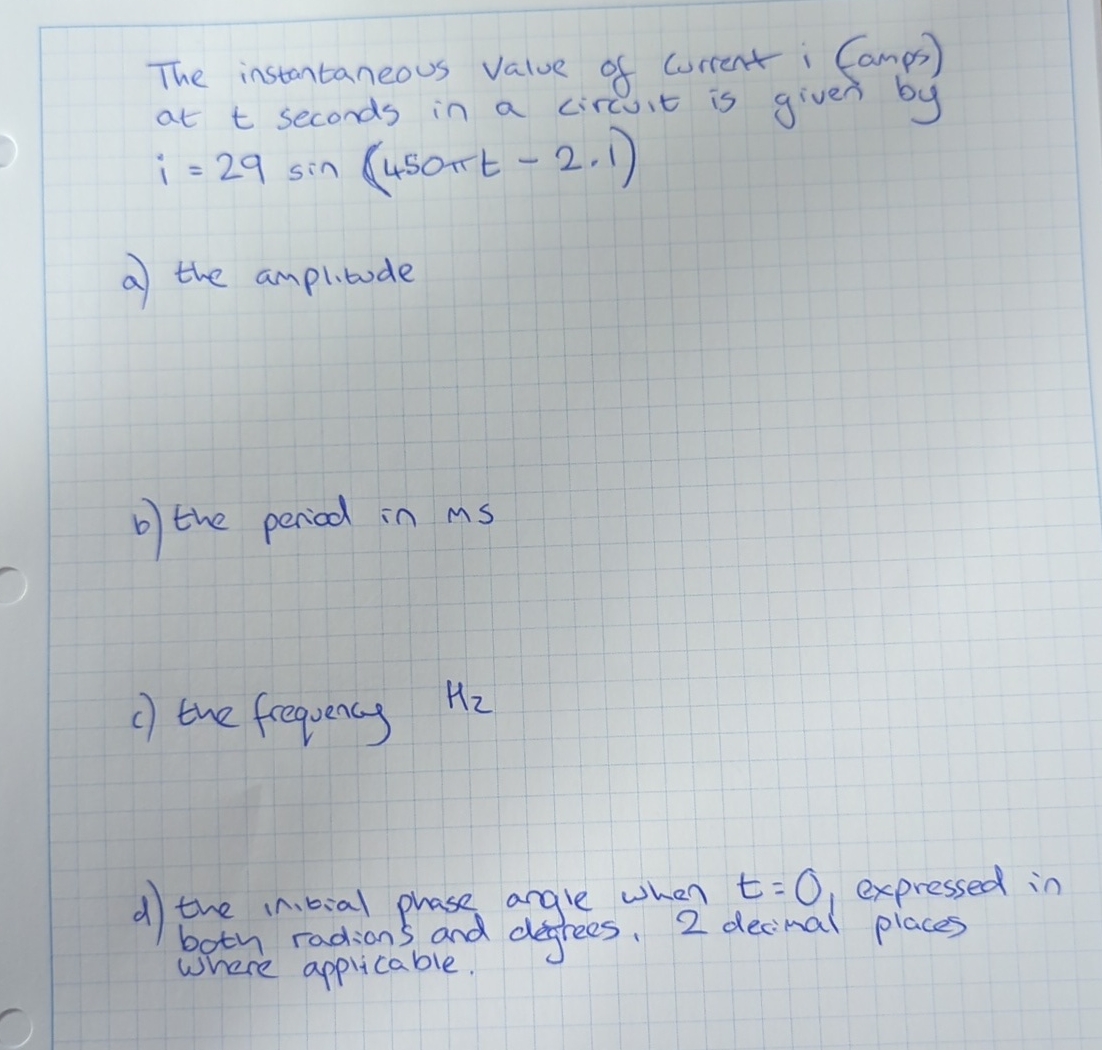 The instantaneous value of current i (amps)
at t seconds in a circuit is given by
i = 29 sin (450πt - 2.1)
a) the amplitude
b) the period in ms
c) the frequency Hz
d) the initial phase angle when t=0, expressed in
both radians and degrees. 2 decimal places
where applicable.